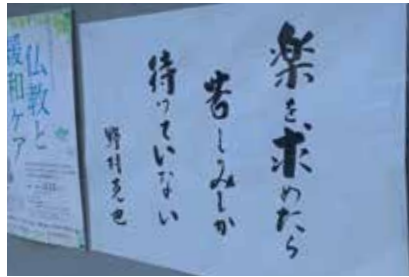 楽を求めたら
苦しみしか
待っていない
野村克也
仏教と
緩和ケア